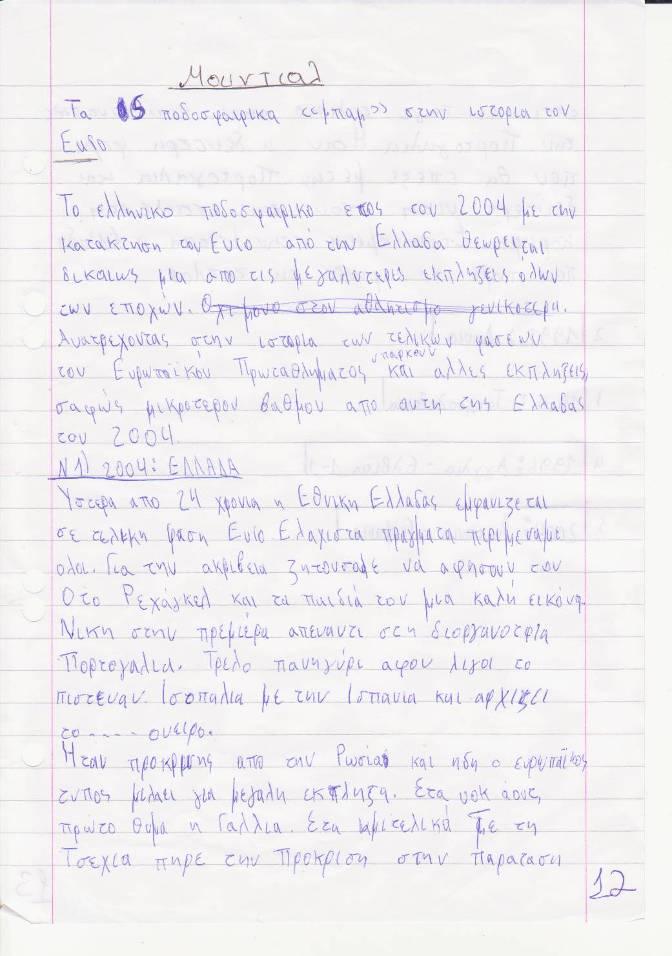 Μουντιαλ
Τα 15 ποδοσφαιρικα «μπαμ» στην ιστορια του
Euro
Το ελληνικο ποδοσφαιρικο επος του 2004 με την
κατακτηση του Euro από την Ελλαδα θεωρειται
δικαιως μια απο τις μεγαλυτερες εκπληξεις όλων
των εποχών. Οχι μονο στον αθλητισμο γενικοτερα.
Ανατρεχοντας στην ιστορια των τελικών φασεων
υπαρχουν
του Ευρωπαϊκού Πρωταθληματος και αλλες εκπληξεις,
σαφώς μικροτερου βαθμου απο αυτη της Ελλαδας
του 2004.
Ν1) 2004: ΕΛΛΑΔΑ
Υστερα απο 24 χρονια η Εθνικη Ελλαδας εμφανιζεται
σε τελικη φαση Euro Ελαχιστα πραγματα περιμεναμε
ολοι. Για την ακριβεια ζητουσαμε νά αφησουν του
Οτο Ρεχάγκελ και τα παιδιά του μια καλή εικόνα.
Νικη στην πρεμιέρα απεναντι στη διοργανοτρια
Πορτογαλια. Τρελο πανηγύρι αφου λιγοι το
πιστευαν. Ισοπαλια με την Ισπανια και αρχιζει
το .... ονειρο.
Ηταν προκριση απο την Ρωσία και ηδη ο ευρωπαϊκος
τυπος μιλαει για μεγαλη εκπληξη. Στα νοκ άουτ,
πρώτο θυμα η Γαλλια. Στα ημιτελικά με τη
Τσεχια πηρε την προκριση στην παραταση
12